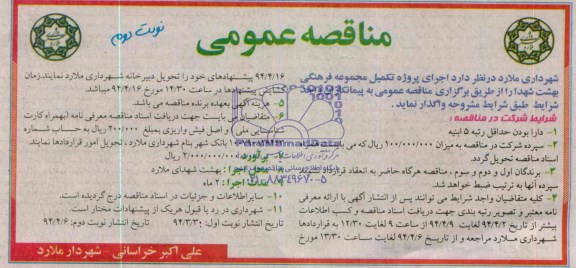 مناقصه عمومی
نوبت دوم
شهرداری ملارد درنظر دارد اجرای پروژه تکمیل مجموعه فرهنگی
بهشت شهدا را از طریق برگزاری مناقصه عمومی به پیمانکار
شرایط طبق شرایط مشروحه واگذار نماید .
شرایط شرکت در مناقصه :
۱- دارا بودن حداقل رتبه ۵ ابنیه
۲- سپرده شرکت در مناقصه به میزان ۱۰۰/۰۰۰/۰۰۰ ریال که می بایست
اسناد مناقصه تحویل گردد.
۳- برندگان اول و دوم و سوم ، مناقصه هرگاه حاضر به انعقاد قرارداد نشوند
سپرده آنها به ترتیب ضبط خواهد شد.
۴- کلیه متقاضیان واجد شرایط می توانند پس از انتشار آگهی با ارائه معرفی
نامه معتبر و تصویر رتبه بندی جهت دریافت اسناد مناقصه و کسب اطلاعات
بیشتر از تاریخ ۹۴/۴/۲ لغایت ۹۴/۴/۹ از ساعت ۹ لغایت ۱۲/۳۰ به قراردادها
شهرداری ملارد مراجعه و از تاریخ ۹۴/۴/۶ لغایت ساعت ۱۳/۳۰ مورخ
۹۴/۴/۱۶ پیشنهادهای خود را تحویل دبیرخانه شهرداری ملارد نمایند.زمان
گشایش پیشنهادها در ساعت ۱۴/۳۰ مورخ ۹۴/۴/۱۶ میباشد.
۵- هزینه آگهی بعهده برنده مناقصه می باشد.
۶- متقاضیان می بایست جهت دریافت اسناد مناقصه معرفی نامه (بهمراه کارت
شناسایی ملی) و اصل فیش واریزی بمبلغ ۲۰۰/۰۰۰ ریال به حساب شماره
بانک شهر بنام شهرداری ملارد، تحویل امور قراردادها نمایند
۷- برآورد : ۲/۰۰۰/۰۰۰/۰۰۰ ریال
بهشت شهدای ملارد
مدت اجرا : ۲ ماه
۱۰- سایر اطلاعات و جزئیات در اسناد مناقصه درج گردیده است.
۱۱- شهرداری در رد یا قبول هریک از پیشنهادات مختار است.
تاریخ انتشار نوبت اول: ۹۴/۳/۳۰ تاریخ انتشار نوبت دوم: ۹۴/۴/۶
علی اکبر خراسانی - شهردار ملارد
ParsNamadData
۰۲۱-۸۸۳۴۹۶۷۰-۵